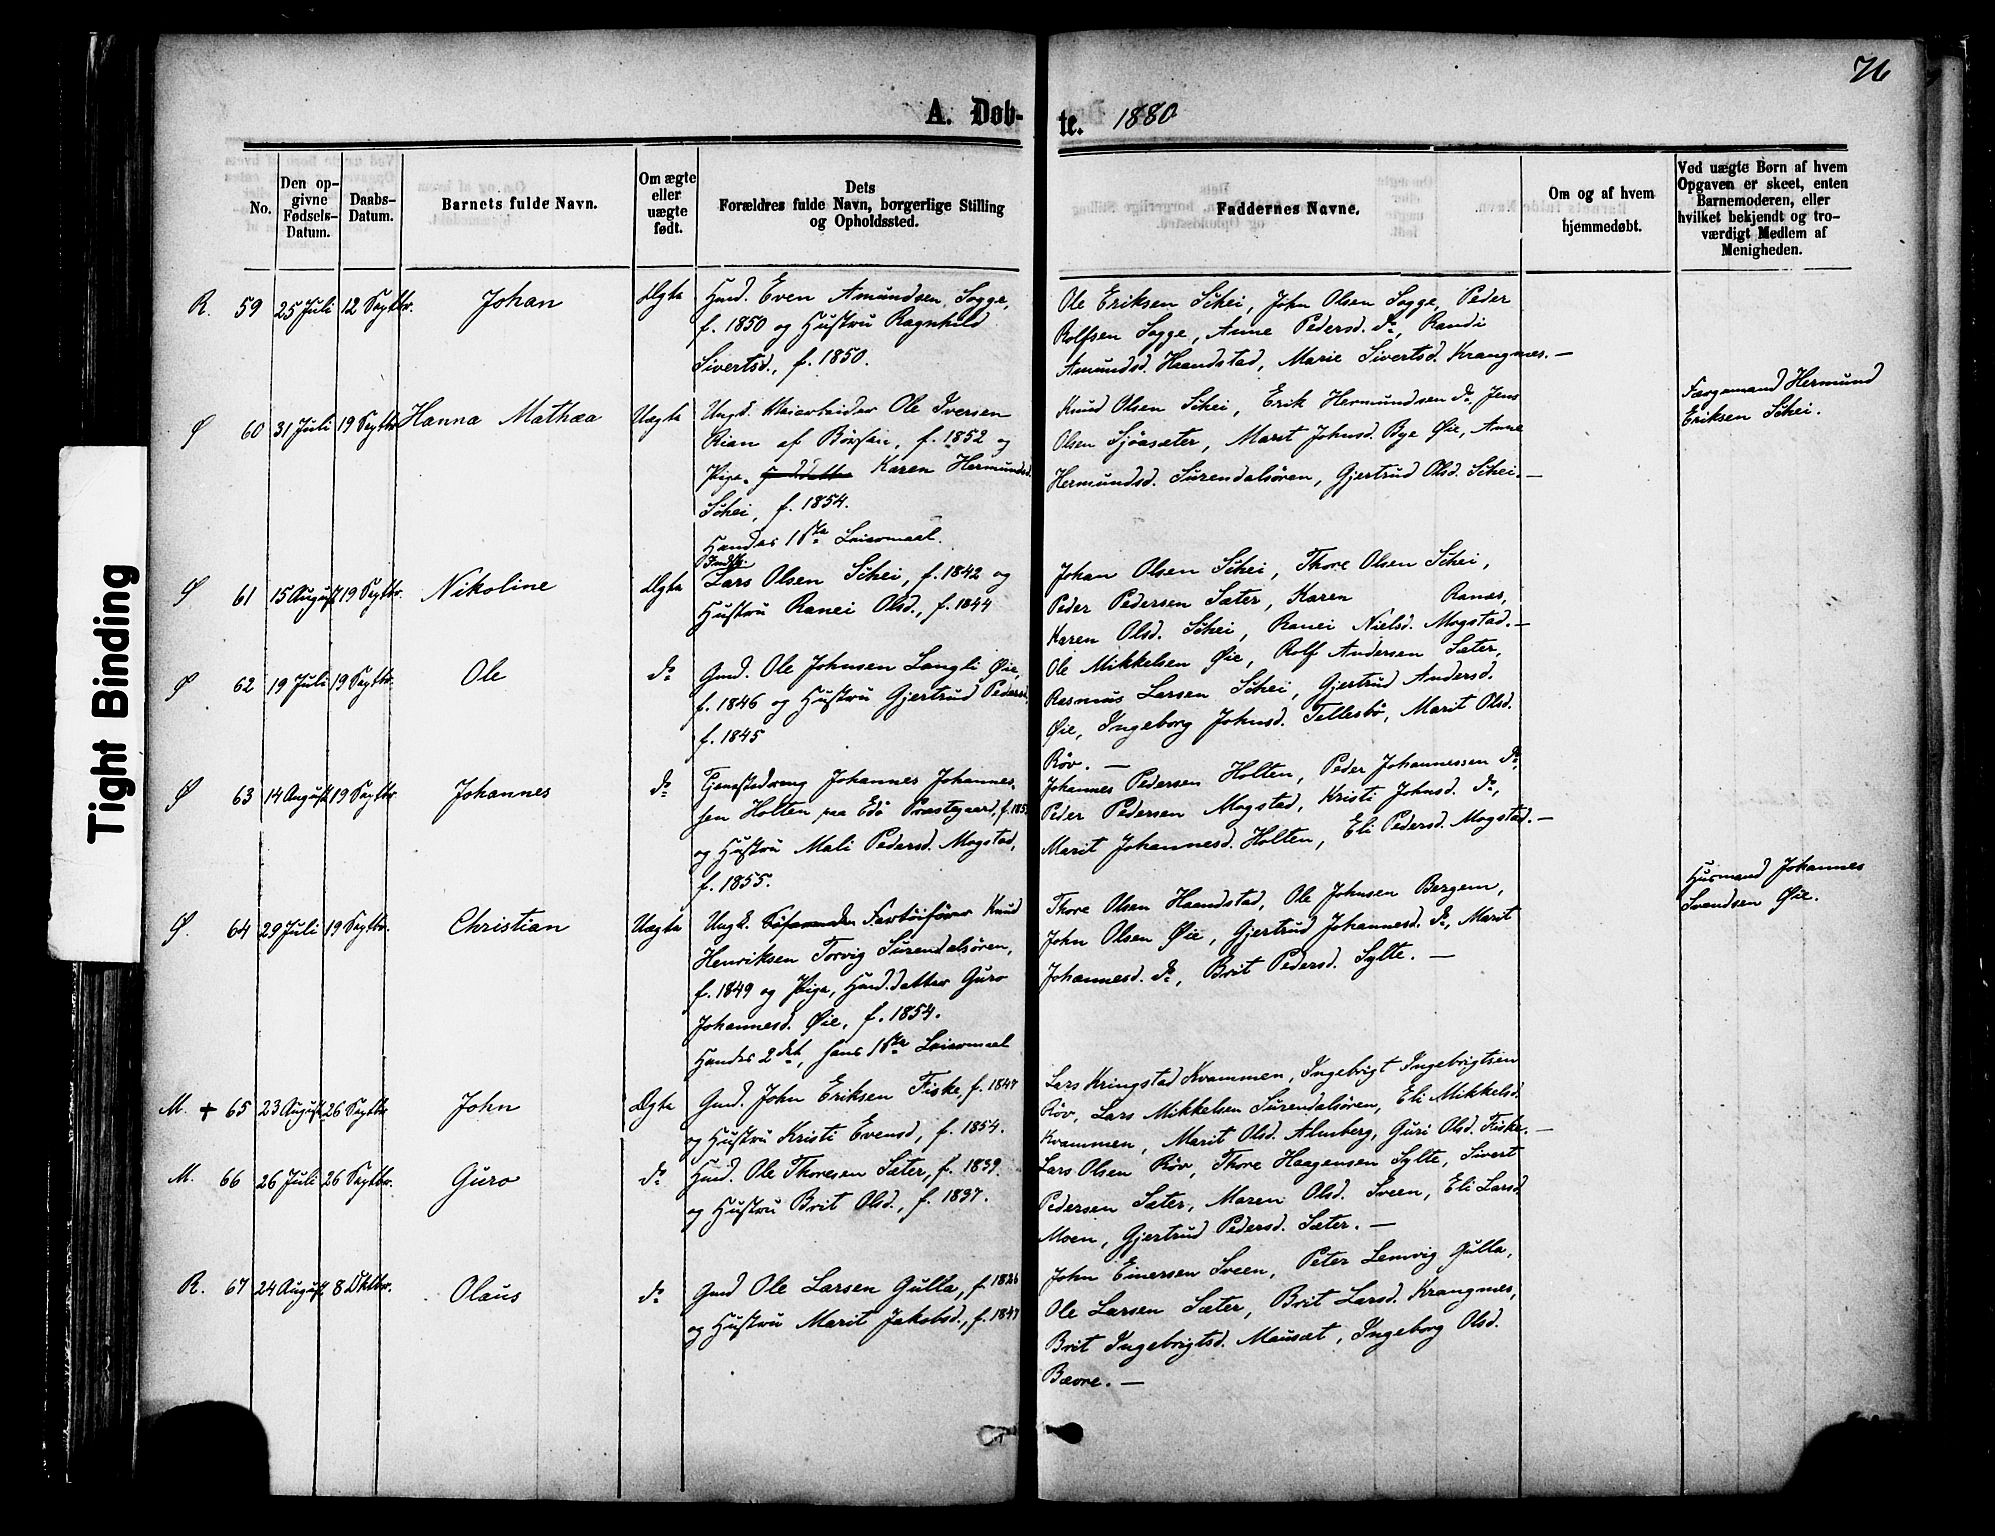 76
A. Døb-
te. 1880
No.
Den op-
givne
Fødsels-
Datum.
Daabs-
Datum.
Barnets fulde Navn.
Om ægte
eller
uægte
født.
Dets
Forældres fulde Navn, borgerlige Stilling
og Opholdssted.
Faddernes Navne.
Om og af hvem
hjemmedøbt.
Ved uægte Børn af hvem
Opgaven er skeet, enten
Barnemoderen, eller
hvilket bekjendt og tro-
værdigt Medlem af
Menigheden.
R. 59 25 Juli 12 Septbr. Johan Ægte
Husmd. Even Amundsen Sogge,
f. 1850 og Hustru Ragnhild
Sivertsd., f. 1850.
Ole Eriksen Schei, John Olsen Sogge, Peder
Rolfsen Sogge, Anne Pedersd. do, Randi
Amundsd. Haandstad, Marie Sivertsd. Krangnes. —
Ø 60 31 Juli 19 Septbr. Hanna Mathea Uægte
Ungk. Veiarbeider Ole Iversen
Rian af Børsen, f. 1852 og
Pige Karen Hermundsd.
Schei, f. 1854.
Hendes 1ste Leiermaal.
Knud Olsen Schei, Erik Hermundsen do, Jens
Olsen Sjøasæter, Marit Johnsd. Bye Øie, Anne
Hermundsd. Surendalsøren, Gjertrud Olsd. Schei. —
Færgemand Hermund
Eriksen Schei.
Ø 61 15 August 19 Septbr. Nikoline Ægte
Lars Olsen Schei, f. 1842 og
Hustru Ranei Olsd., f. 1844
Johan Olsen Schei, Thore Olsen Schei,
Peder Pedersen Sæter, Karen Ranæs,
Karen Olsd. Schei, Ranei Nielsd. Mogstad. —
Ø 62 19 Juli 19 Septbr. Ole do
Gmd. Ole Johnsen Langli Øie,
f. 1846 og Hustru Gjertrud Pedersd.
f. 1845
Ole Mikkelsen Øie, Rolf Andersen Sæter,
Rasmus Larsen Schei, Gjertrud Andersd.
Øie, Ingeborg Johnsd. Tellesbø, Marit Olsd.
Røv. —
Ø 63 14 August 19 Septbr. Johannes do
Tjenestedreng Johannes Johannes-
sen Holten paa Edø Præstegaard, f. 185
og Hustru Mali Pedersd. Mogstad,
f. 1855.
Johannes Pedersen Holten, Peder Johannessen do,
Peder Pedersen Mogstad, Kristi Johnsd. do,
Marit Johannesd. Holten, Eli Pedersd. Mogstad. —
Ø. 64 29 Juli 19 Septbr. Christian Uægte
Ungk. Fartøifører Knud
Henriksen Torvig Surendalsøren,
f. 1849 og Pige, Husmd.datter Guro
Johannesd. Øie, f. 1854.
Hendes 2det, hans 1ste Leiermaal
Thore Olsen Haandstad, Ole Johnsen Bergem,
John Olsen Øie, Gjertrud Johannesd. do, Marit
Johannesd. do, Brit Pedersd. Sylte. —
Husmand Johannes
Svendsen Øie.
M. + 65 23 August 26 Septbr. John Ægte
Gmd. John Eriksen Fiske, f. 1847
og Hustru Kristi Evensd, f. 1854.
Lars Kringstad Kvammen, Ingebrigt Ingebrigtsen
Røv, Lars Mikkelsen Surendalsøren, Eli Mikkelsd.
Kvammen, Marit Olsd. Almberg, Guri Olsd. Fiske. —
M. 66 26 Juli 26 Septbr. Guro do
Husmd. Ole Thoresen Sæter, f. 1839.
og Hustru Brit Olsd., f. 1837.
Lars Olsen Røv, Thore Haagensen Sylte, Sivert
Pedersen Sæter, Maren Olsd. Sveen, Eli Larsd.
Moen, Gjertrud Pedersd. Sæter. —
R. 67 24 August 8 Oktbr. Olaus do
Gmd Ole Larsen Gulla, f. 1826
og Hustru Marit Jakobsd., f. 1847
John Einersen Sveen, Peter Lemvig Gulla,
Ole Larsen Sæter, Brit Larsd. Krangnes,
Brit Ingebrigtsd. Mausæt, Ingeborg Olsd.
Bævre. —
Tight Binding